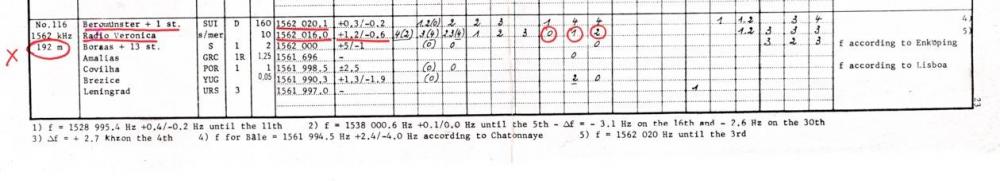 No.116 Beromünster + 1 st. SUI D 160 1562 020,1 +0,3/-0,2 1.2(0) 2 2 3 1 4 4 1 1.2 3 4 4)
1562 kHz Radio Veronica s/mer 10 1562 016,0 +1,2/-0,6 4(2) 3(4) 2.3(4) 1 2 3 0 1 2 1.2 3 3 3 5)
192 m Boraas + 13 st. S 1 2 1562 000 +5/-1 (0) 0 0 3 2 3 f according to Enköping
Amalias GRC 1R 1,25 1561 696 - 0
Covilha POR 1 1 1561 998,5 ±2,5 (0) 0 f according to Lisboa
Brezice YUG 0,05 1561 990,3 +1,3/-1,9 (0) 2 0
Leningrad URS 3 1561 997,0 - 1
X
23
1) f = 1528 995,4 Hz +0,4/-0,2 Hz until the 11th 2) f = 1538 000,6 Hz +0,1/0,0 Hz until the 5th - Δf = - 3,1 Hz on the 16th and - 2,6 Hz on the 30th
3) Δf = + 2,7 kHz on the 4th 4) f for Bâle = 1561 994,5 Hz +2,4/-4,0 Hz according to Chatonnaye 5) f = 1562 020 Hz until the 3rd